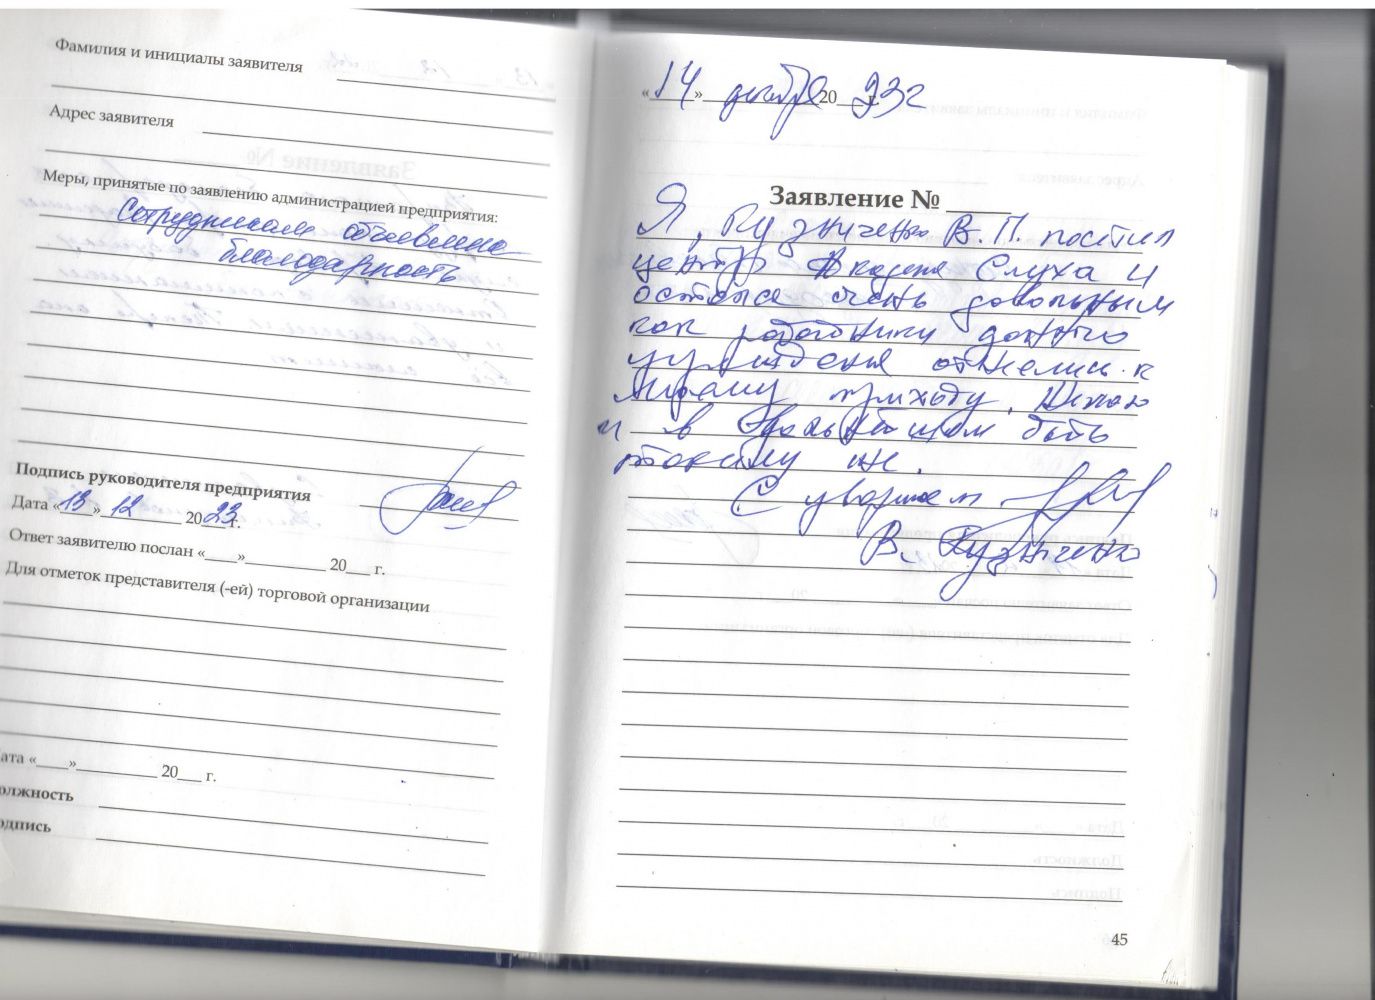 Фамилия и инициалы заявителя
Адрес заявителя
Меры, принятые по заявлению администрацией предприятия:
Сотрудникам объявлена
благодарность
Подпись руководителя предприятия
Дата «13» 12 2023 г.
Ответ заявителю послан «____»__________ 20___ г.
Для отметок представителя (-ей) торговой организации
ата «____»__________ 20___ г.
олжность
одпись
«14» декабря 20 23г г.
Заявление № ____
Я, Кузниченко В.П. посетил
центр Академия Слуха и
остался очень довольным
как работники данного
учреждения отнелись к
моему приходу. Желаю
и в дальнейшем быть
такими же.
С уважением
В. Кузниченко
45